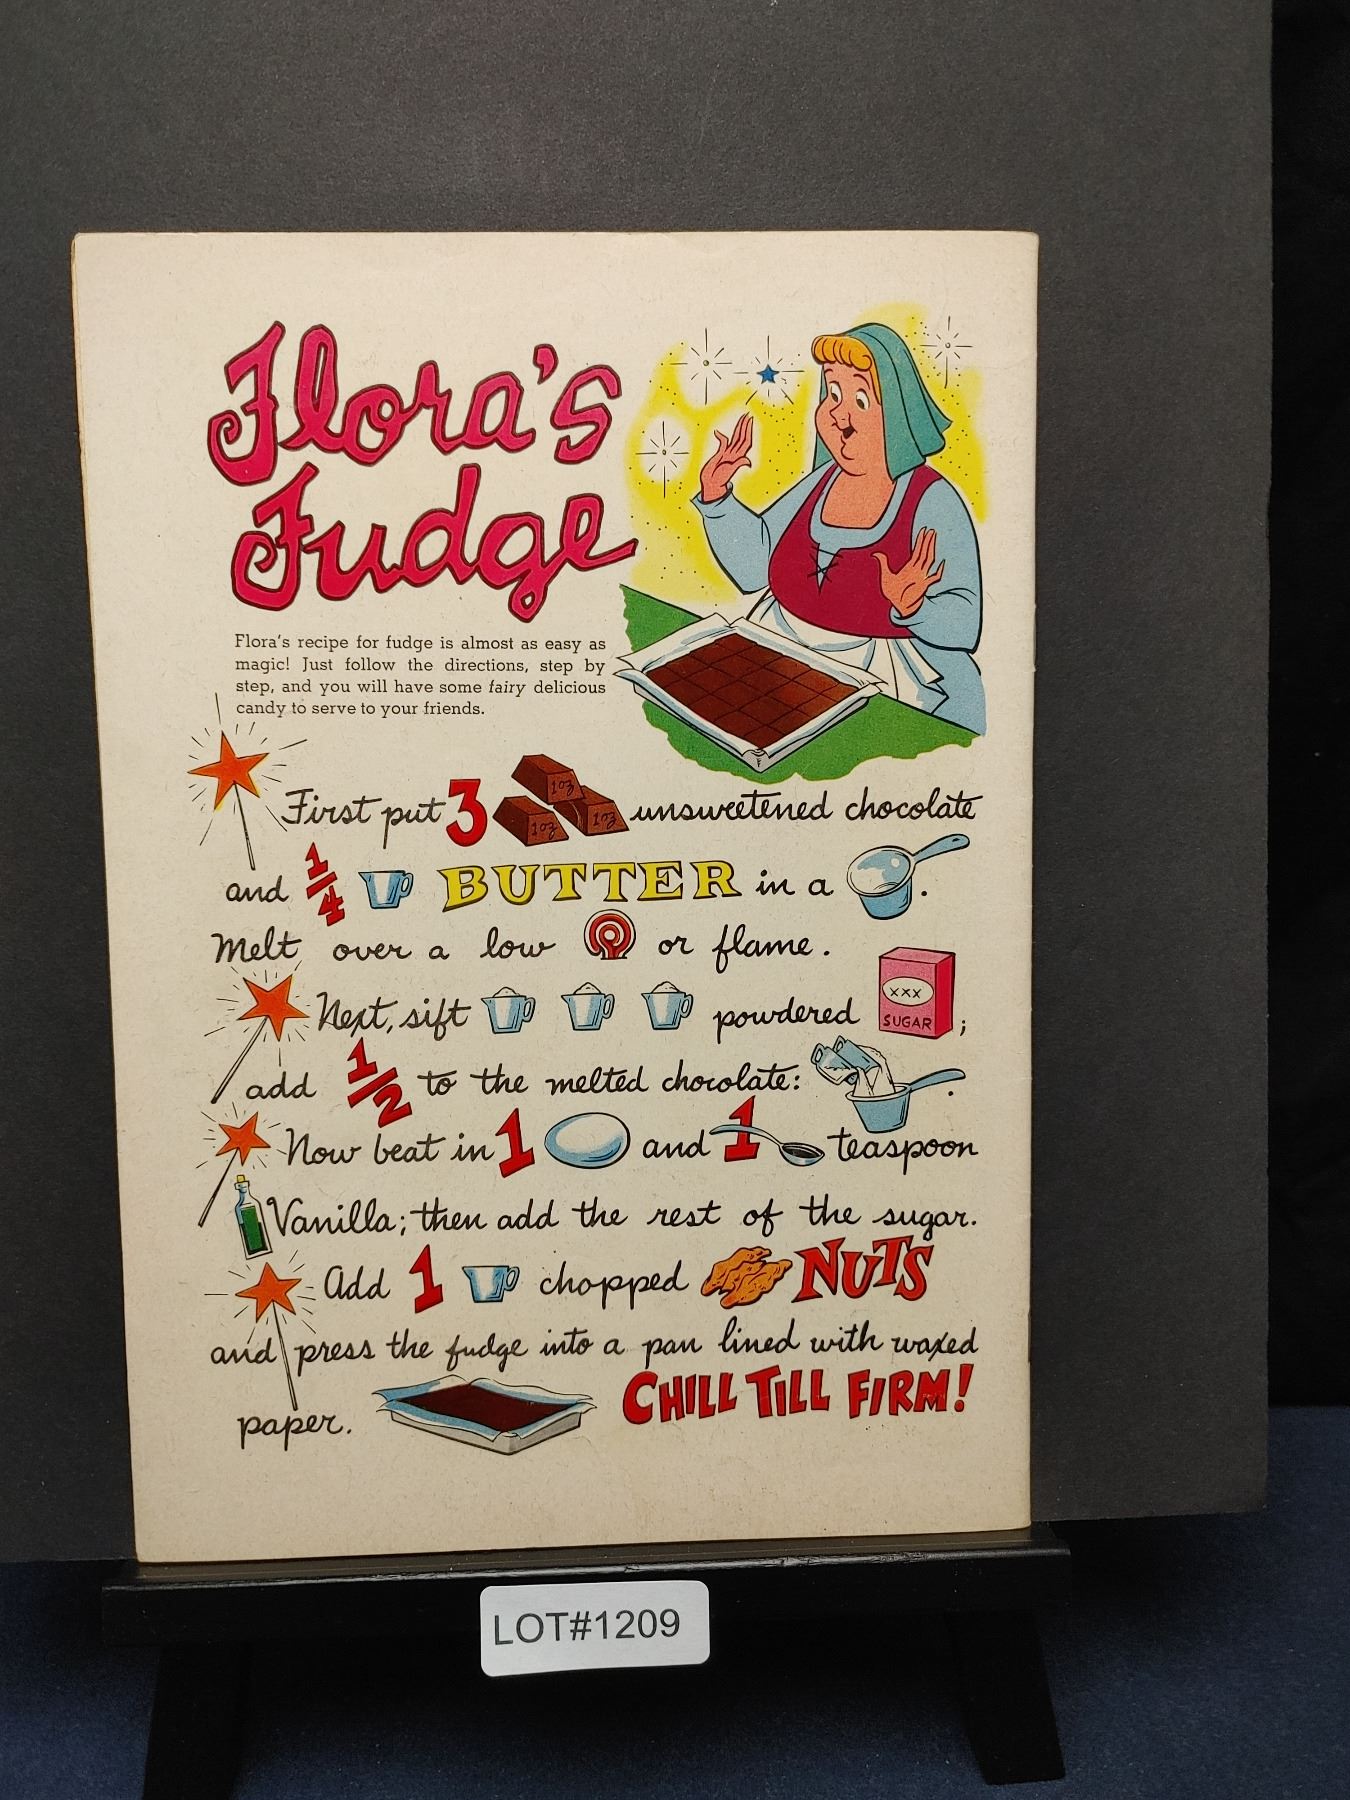 Flora's
Fudge
Flora's recipe for fudge is almost as easy as
magic! Just follow the directions, step by
step, and you will have some fairy delicious
candy to serve to your friends.
First put 3 1oz 1oz 1oz unsweetened chocolate
and 1/4 BUTTER in a .
Melt over a low or flame.
Next, sift powdered XXX SUGAR ;
add 1/2 to the melted chocolate: .
Now beat in 1 and 1 teaspoon
Vanilla; then add the rest of the sugar.
Add 1 chopped NUTS
and press the fudge into a pan lined with waxed
paper. CHILL TILL FIRM!
LOT#1209